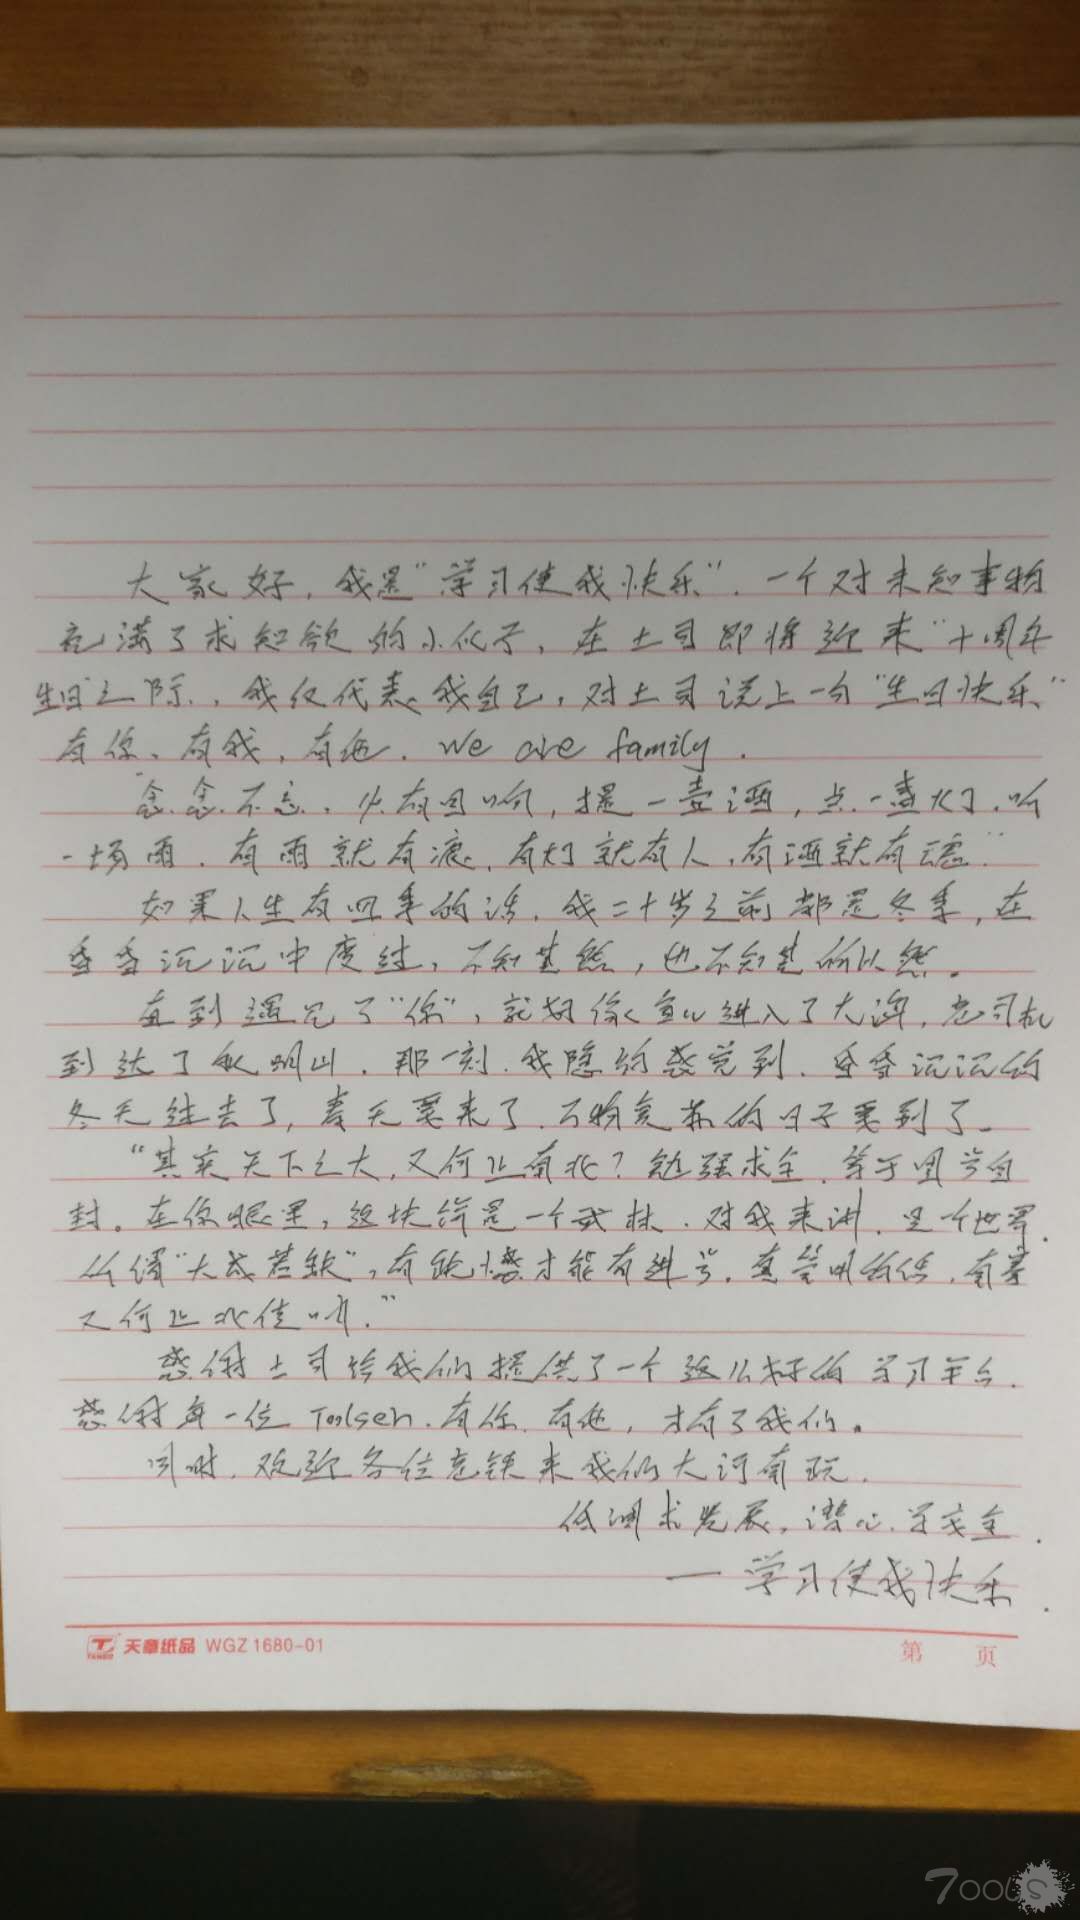 大家好，我是“学习使我快乐”，一个对未知事物
充满了求知欲的小伙子，在土司即将迎来“十周年
生日”之际，我仅代表我自己，对土司说上一句“生日快乐”
有你、有我，有他．We are family．
“念念不忘，必有回响，提一壶酒，点一盏灯，听
一场雨．有雨就有濂，有灯就有人，有酒就有
如果人生有四季的话，我二十岁之前都是冬季，在
昏昏沉沉中度过，不知其然，也不知其所以然。
直到遇见了“你”，就好像鱼儿进入了大海，老司机
到达了秋明山．那一刻，我隐约感觉到，昏昏沉沉的
冬天过去了，春天要来了，万物复苏的日子要到了。
“其实天下之大，又何止南北？勉强求全，等于固步自
封。在你眼里，这块饼是一个武林．对我来讲，是一个世界．
所谓“大成若缺”，有缺憾才能有进步．真管用的话，南拳
又何止北传呐．”
感谢土司给我们提供了一个这么好的学习平台．
感谢每一位Toolsen．有你，有他，才有了我们。
同时，欢迎各位老铁来我们大河南玩．
低调求发展，潜心学安全．
一学习使我快乐．
TANGO 天章纸品 WGZ 1680-01 第 页
T00LS